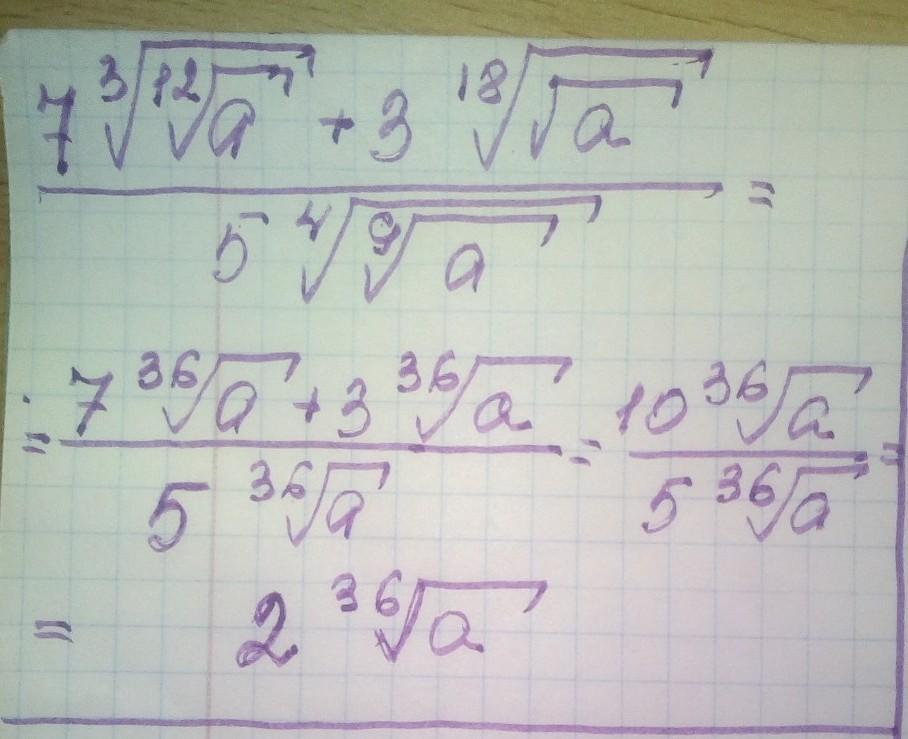 7 ∛(¹²√a) + 3 ¹⁸√(√a)
———————— =
5 ⁴√(⁹√a)
= (7 ³⁶√a + 3 ³⁶√a) / (5 ³⁶√a) = (10 ³⁶√a) / (5 ³⁶√a) =
= 2 ³⁶√a